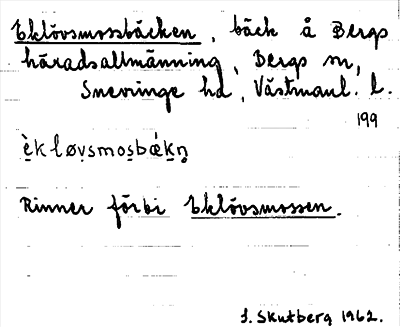 Eklövsmossbäcken, bäck å Bergs
häradsallmänning, Bergs sn,
Snevringe hd, Västmanl. l.
199
è̱kløv̥smos̥bǽkn̥
Rinner förbi Eklövsmossen.
J. Skutberg 1962.